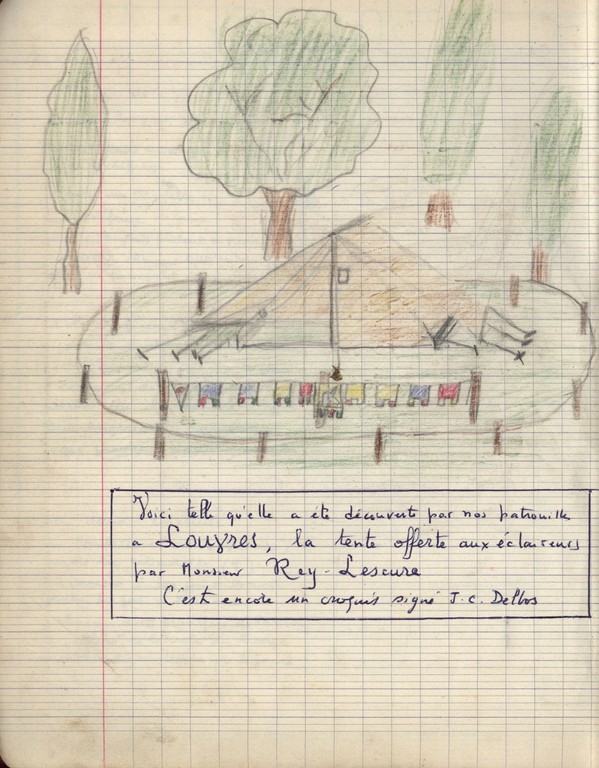 Voici telle qu'elle a été découverte par nos patrouilles
a Louvres, la tente offerte aux éclaireurs
par Monsieur Rey-Lescure
C'est encore un croquis signé J.C. Delbos